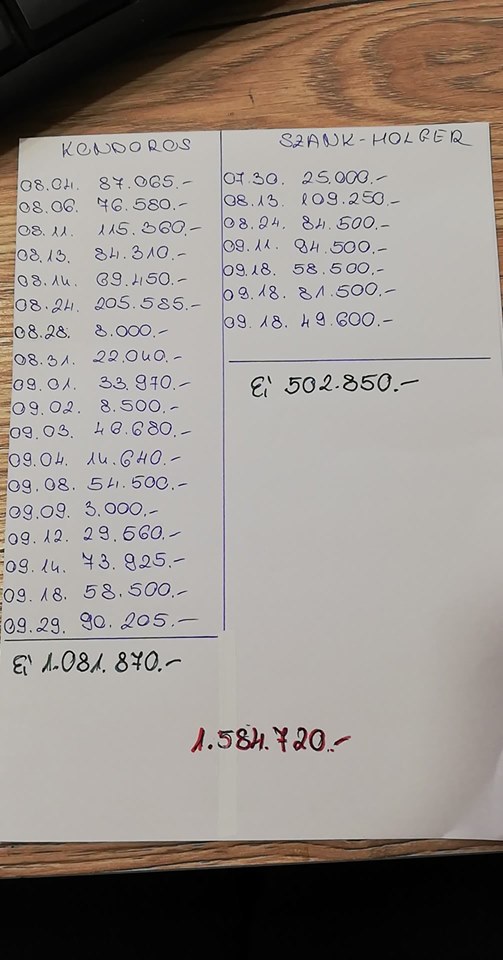 KONDOROS
08.04. 87.065.-
08.06. 76.580.-
08.11. 115.360.-
08.13. 84.310.-
08.14. 69.450.-
08.24. 205.585.-
08.28. 8.000.-
08.31. 22.040.-
09.01. 33.970.-
09.02. 8.500.-
09.03. 46.680.-
09.04. 14.640.-
09.08. 54.500.-
09.09. 3.000.-
09.12. 29.560.-
09.14. 73.925.-
09.18. 58.500.-
09.29. 90.205.-
Σ: 1.081.870.-
SZANK-HOLGER
07.30. 25.000.-
08.13. 109.250.-
08.24. 84.500.-
09.11. 94.500.-
09.18. 58.500.-
09.18. 81.500.-
09.18. 49.600.-
Σ: 502.850.-
1.584.720.-